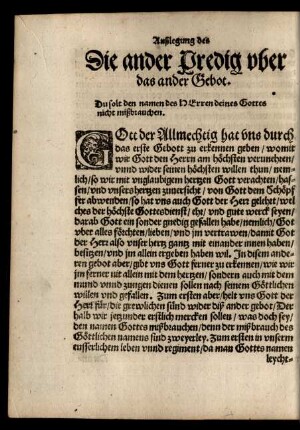 Außlegung des
Die ander Predig vber
das ander Gebot.
Du solt den namen des HErren deines Gottes
nicht mißbrauchen.
GOtt der Allmechtig hat vns durch
das erste Gebott zu erkennen geben / womit
wir Gott den Herrn am höchsten verunehren /
vnnd wider seinen höchsten willen thun / nem-
lich / so wir mit vnglaubigem hertzen Gott verachten / has-
sen / vnd vnsers hertzen zuuersicht / von Gott dem Schöpf
fer abwenden / so hat vns auch Gott der Herr gelehrt / wel
ches der höchste Gottesdienst / ehr / vnd gute werck seyen /
darab Gott ein sonder gnedig gefallen habe / nemlich / Got
vber alles förchten / lieben / vnd jm vertrawen / damit Gott
der Herr also vnser hertz gantz mit einander innen haben /
besitzen / vnd jm allein ergeben haben wil. In disem ande-
ren gebot aber / gibt vns Gott ferner zu erkennen / wie wir
jm ferner nit allein mit dem hertzen / sondern auch mit dem
mund vnnd zungen dienen sollen nach seinem Göttlichen
willen vnd gefallen. Zum ersten aber / helt vns Gott der
Herr für / die grewlichen sünd wider diß ander gebot / Der
halb wir jetzunder erstlich mercken sollen / was doch sey /
den namen Gottes mißbrauchen / denn der mißbrauch des
Göttlichen namens sind zweyerley. Zum ersten in vnserm
eusserlichem leben vnnd regiment / da man Gottes namen
leycht-